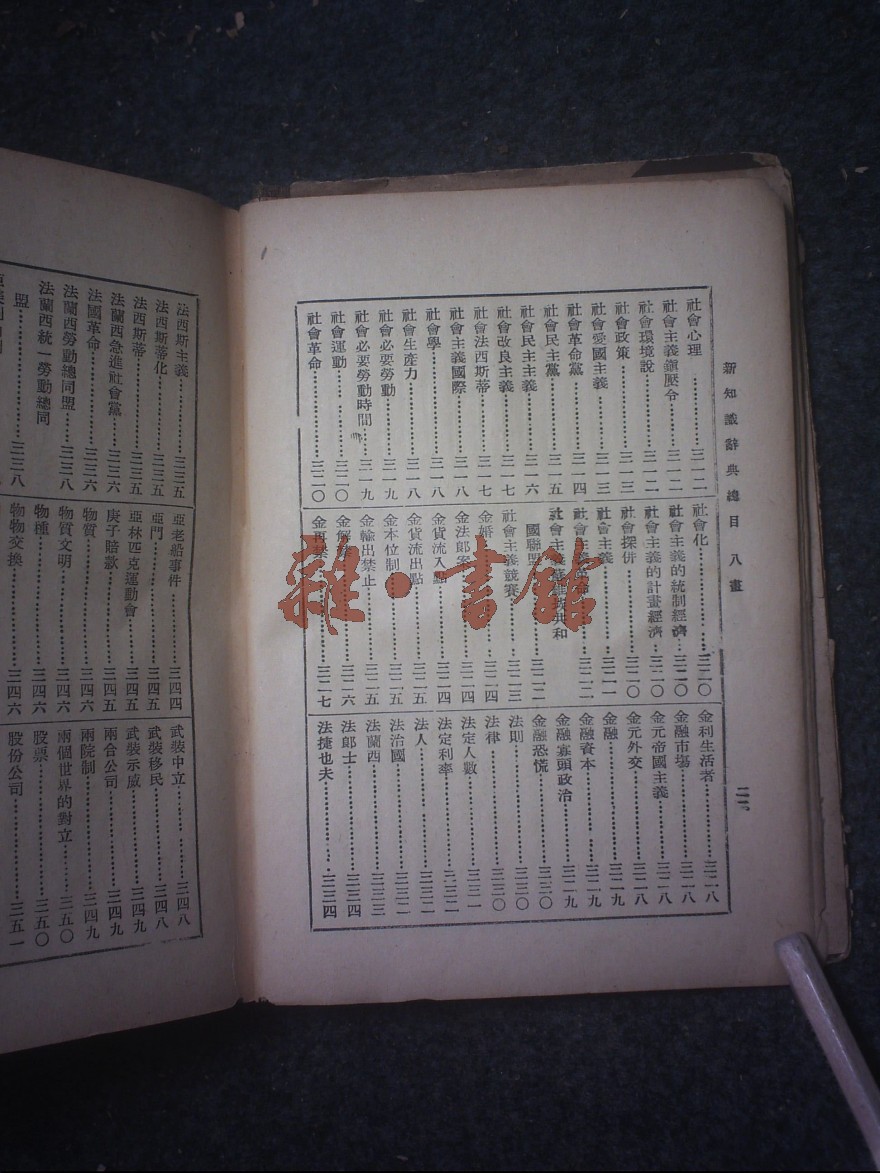 新知識辭典總目 八畫
社會心理………三一二
社會主義鎭壓令………三一二
社會環境說………三一二
社會政策………三一三
社會愛國主義………三一三
社會革命黨………三一四
社會民主黨………三一五
社會民主主義………三一六
社會改良主義………三一七
社會法西斯蒂………三一七
社會主義國際………三一八
社會學………三一八
社會生產力………三一八
社會必要勞動………三一九
社會必要勞動時間………三一九
社會運動………三二〇
社會革命………三二〇
社會化………三二〇
社會主義的統制經濟………三二〇
社會主義的計畫經濟………三二〇
社會探倂………三二〇
社會主義………三二一
社會主義
社會主義 共和
國聯盟………三二二
社會主義競賽………三二三
金婚………三二四
金法郎案………三二四
金貨流入點………三二四
金貨流出點………三二五
金本位制………三二五
金輸出禁止………三二五
金解禁………三二六
金再禁………三二七
金利生活者………三二八
金融市場………三二八
金元帝國主義………三二八
金元外交………三二八
金融………三二九
金融資本………三二九
金融寡頭政治………三二九
金融恐慌………三三〇
法則………三三〇
法律………三三〇
法定人數………三三一
法定利率………三三二
法人………三三二
法治國………三三二
法蘭西………三三三
法郎士………三三四
法捷也夫………三三四
二一
法西斯主義………三三五
法西斯蒂化………三三五
法西斯蒂………三三五
法蘭西急進社會黨………三三六
法國革命………三三六
法蘭西勞動總同盟………三三八
法蘭西統一勞動總同
盟………三三八
亞老船事件………三四四
亞門………三四五
亞林匹克運動會………三四五
庚子賠款………三四五
物質………三四六
物質文明………三四六
物種………三四六
物物交換………三四六
武裝中立………三四八
武裝移民………三四八
武裝示威………三四九
兩合公司………三四九
兩院制………三四九
兩個世界的對立………三五〇
股票………三五〇
股份公司………三五一
雜·書館